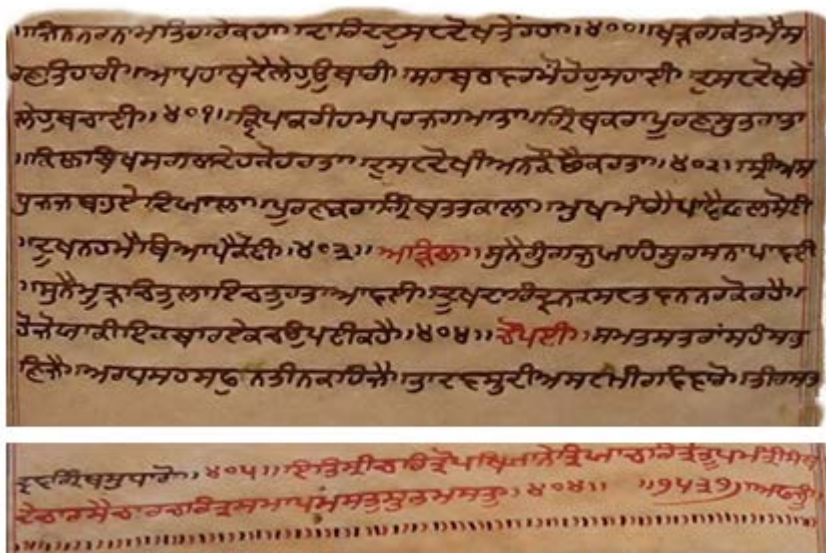 ॥ਜਿਨ ਨਰ ਨਾਮ ਤਿਹਾਰੋ ਕਹਾ॥ਦਾਰਿਦ ਦੁਸਟ ਦੋਖ ਤੇ ਰਹਾ॥੪੦੦॥ਖੜਗ ਕੇਤ ਮੈ ਸ
ਰਣਿ ਤਿਹਾਰੀ॥ਆਪ ਹਾਥ ਦੈ ਲੇਹੁ ਉਬਾਰੀ॥ਸਰਬ ਠਵਰ ਮੋ ਹੋਹੁ ਸਹਾਈ॥ਦੁਸਟ ਦੋਖ ਤੇ
ਲੇਹੁ ਬਚਾਈ॥੪੦੧॥ਕ੍ਰਿਪਾ ਕਰੀ ਹਮ ਪਰ ਜਗਮਾਤਾ॥ਗ੍ਰਿੰਥ ਕਰਾ ਪੂਰਣ ਸੁਭ ਰਾਤਾ
॥ਕਿਲਬਿਖ ਸਗਲ ਦੇਹ ਕੋ ਹਰਤਾ॥ਦੁਸਟ ਦੋਖੀਅਨ ਕੋ ਛੈ ਕਰਤਾ॥੪੦੨॥ਸ੍ਰੀ ਅਸ
ਧੁਜ ਜਬ ਹੁਏ ਦਿਯਾਲਾ॥ਪੂਰਣ ਕਰਾ ਗ੍ਰਿੰਥ ਤਤਕਾਲਾ॥ਮੁਖ ਮੰਗੈ ਪਾਵੈ ਫਲ ਸੋਈ
॥ਦੂਖ ਨ ਤਿਸੈ ਬਿਆਪੈ ਕੋਈ॥੪੦੩॥ਅੜਿਲ॥ਸੁਨੈ ਗੁੰਗ ਜੁ ਯਾਹਿ ਸੁ ਰਸਨਾ ਪਾਵਈ
॥ਸੁਨੈ ਮੂੜ ਚਿਤ ਲਾਇ ਚਤੁਰਤਾ ਆਵਈ॥ਦੂਖ ਦਰਦ ਭਉ ਨਿਕਟ ਨ ਤਿਨ ਨਰ ਕੇ ਰਹੈ॥
ਹੋ ਜੋ ਯਾਕੀ ਇਕ ਬਾਰ ਏਕ ਚਉਪਈ ਕਹੈ॥੪੦੪॥ਚੌਪਈ॥ਸੰਮਤ ਸਤ੍ਰਾਂ ਸਹੰਸ ਭ
ਣਿਜੈ॥ਅਰਧ ਸਹਸ ਫੁਨਿ ਤੀਨ ਕਹਿਜੈ॥ਭਾਦ੍ਰਵ ਸੁਦੀ ਅਸਟਮੀ ਰਵਿਵਾਰੋ॥ਤੀਰ ਸਤ
ਦ੍ਰਵ ਗ੍ਰਿੰਥ ਸੁਧਾਰੋ॥੪੦੫॥ਇਤਿ ਸ੍ਰੀ ਚਰਿਤ੍ਰੋਪਖਿਆਨੇ ਤ੍ਰਿਯਾ ਚਰਿਤ੍ਰੇ ਭੂਪ ਮੰਤ੍ਰੀ ਸੰਬਾ
ਦੇ ਚਾਰ ਸੈ ਚਾਰ ਚਰਿਤ੍ਰ ਸਮਾਪਤਮ ਸਤੁ ਸੁਭਮ ਸਤੁ॥੪੦੪॥ ॥੭੫੩੭॥ਅਫਜੂੰ॥